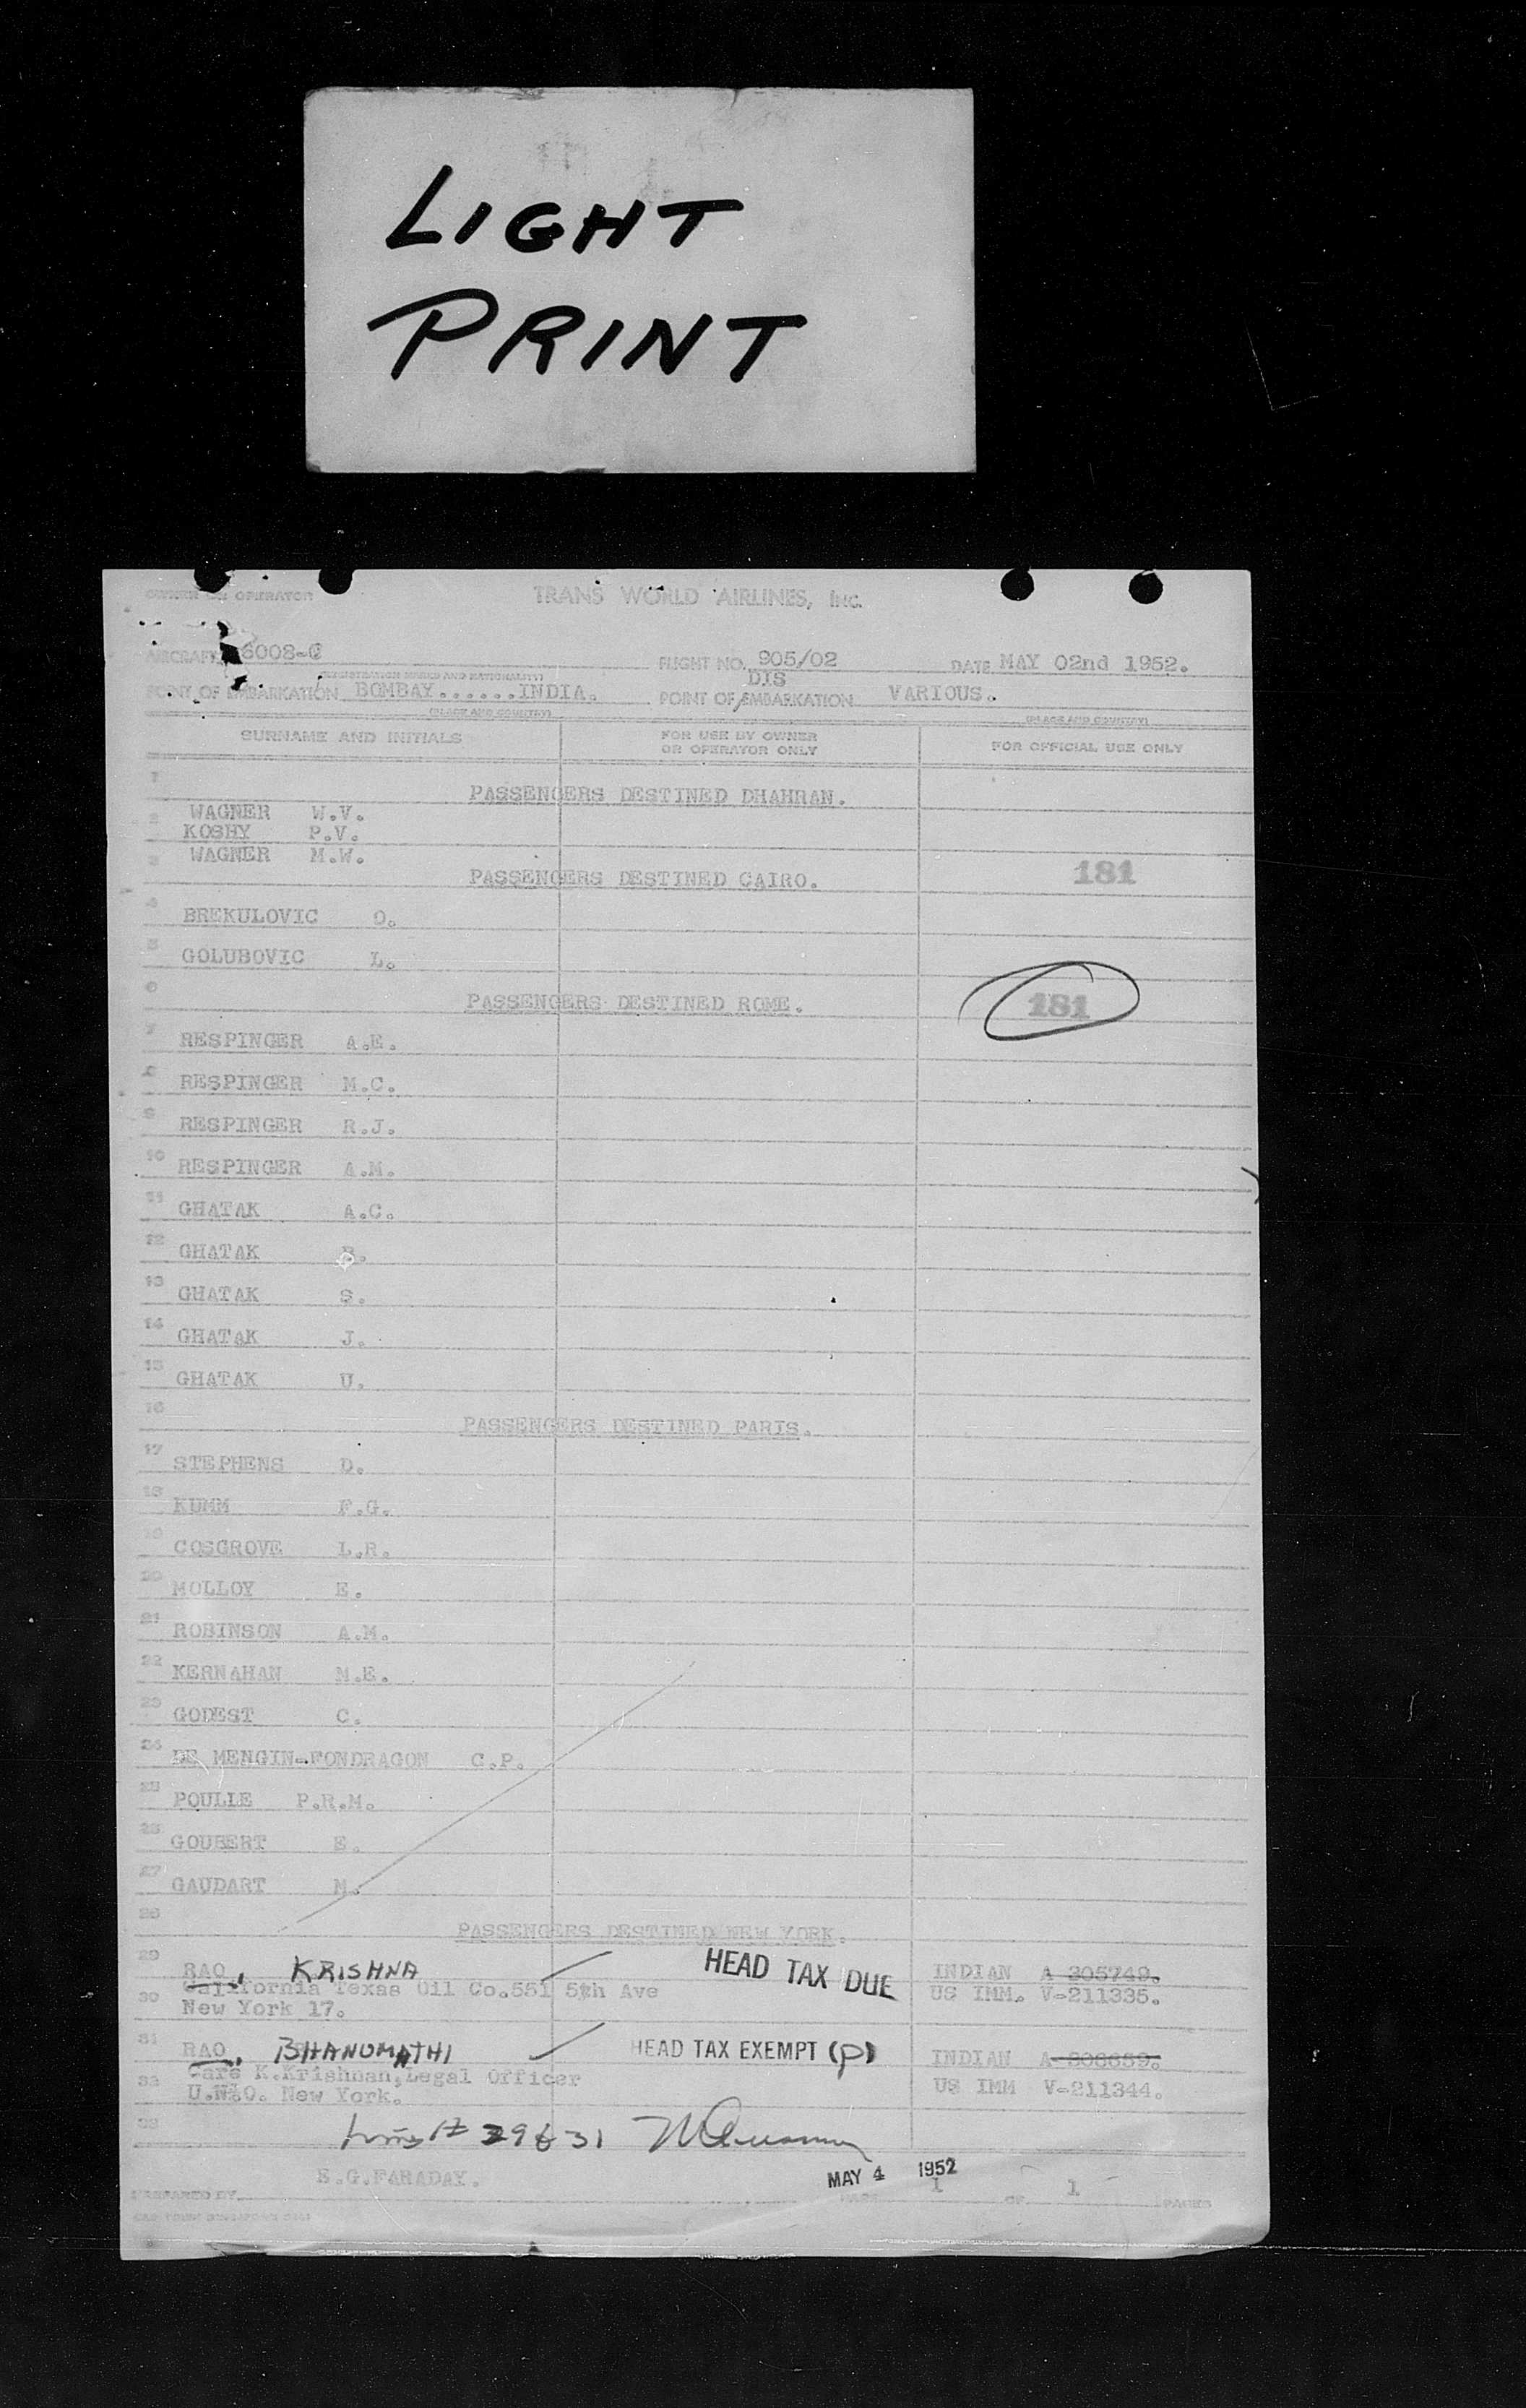 LIGHT
PRINT
OWNER OR OPERATOR TRANS WORLD AIRLINES, INC.
AIRCRAFT 6008-C FLIGHT NO. 905/02 DATE MAY 02nd 1952.
(REGISTRATION MARKS AND NATIONALITY) DIS
POINT OF EMBARKATION BOMBAY......INDIA. POINT OF/EMBARKATION VARIOUS.
(PLACE AND COUNTRY) (PLACE AND COUNTRY)
SURNAME AND INITIALS FOR USE BY OWNER OR OPERATOR ONLY FOR OFFICIAL USE ONLY
1 PASSENGERS DESTINED DHAHRAN.
2 WAGNER W.V.
KOSHY P.V.
3 WAGNER M.W.
PASSENGERS DESTINED CAIRO. 181
4 BREKULOVIC O.
5 GOLUBOVIC L.
6 PASSENGERS DESTINED ROME. 181
7 RESPINGER A.E.
8 RESPINGER M.C.
9 RESPINGER R.J.
10 RESPINGER A.M.
11 GHATAK A.C.
12 GHATAK
13 GHATAK S.
14 GHATAK J.
15 GHATAK U.
16 PASSENGERS DESTINED PARIS.
17 STEPHENS D.
18 KUMM F.G.
19 COSGROVE L.R.
20 MOLLOY E.
21 ROBINSON A.M.
22 KERNAHAN M.E.
23 GODEST C.
24 DE MENGIN-FONDRAGON C.P.
25 POULLE P.R.M.
26 GOUBERT E.
27 GAUDART M.
28 PASSENGERS DESTINED NEW YORK.
29 RAO, KRISHNA HEAD TAX DUE INDIAN A 305749.
California Texas Oil Co.551 5th Ave US IMM. V-211335.
30 New York 17.
31 RAO, BHANUMATHI HEAD TAX EXEMPT (P) INDIAN A-306659.
Care K.Krishnan, Legal Officer
32 U.N.O. New York. US IMM V-211344.
33 29631
E.G.FARADAY. MAY 4 1952
PREPARED BY PAGE 1 OF 1 PAGES